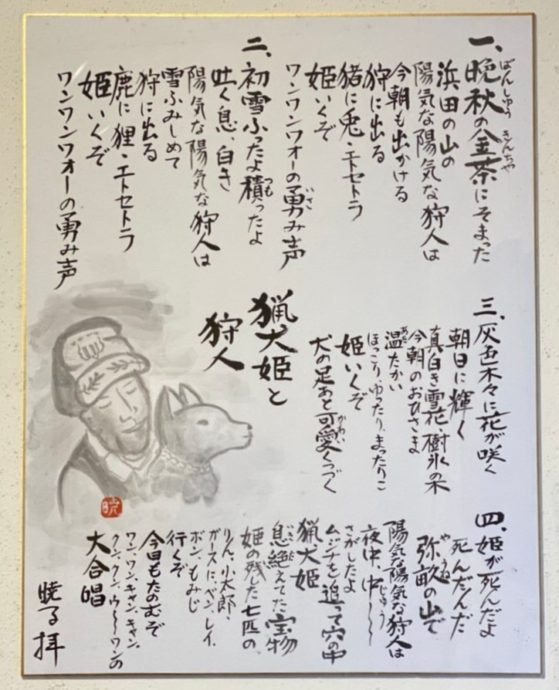 一、晩秋の金茶にそまった
ばんしゅう きんちゃ
浜田の山の
陽気な陽気な狩人は
今朝も出かける
狩に出る
猪に兎・エトセトラ
姫いくぞ
ワンワンワォーの勇み声
いさ
二、初雪ふったよ積ったよ
つも
吐く息、白き
陽気な陽気な狩人は
雪ふみしめて
狩に出る
鹿に狸・エトセトラ
姫いくぞ
ワンワンワォーの勇み声
猟犬姫と
狩人
三、灰色木々に花が咲く
朝日に輝く
真白き雪花樹氷の木
今朝のおひさま
温たかい
あた
ほっこり、ゆったり、まったりこ
姫いくぞ
犬の足あと可愛くつづく
かわい
四、姫が死んだよ
死んだんだ
弥畝の山で
やうね
陽気な陽気な狩人は
夜中、中〜〜
じゅう
さがしたよ
ムジナを追って穴の中
猟犬姫
息絶えてた宝物
姫の残した七匹の、
りん、小太郎、
ガースに、ベン、レイ、
ボン、もみじ
行くぞ
今日もたのむぞ
ワン、ワン、キャン、キャン、
クン、クン、ウ〜〜ワンの
大合唱
暁る 拝
暁